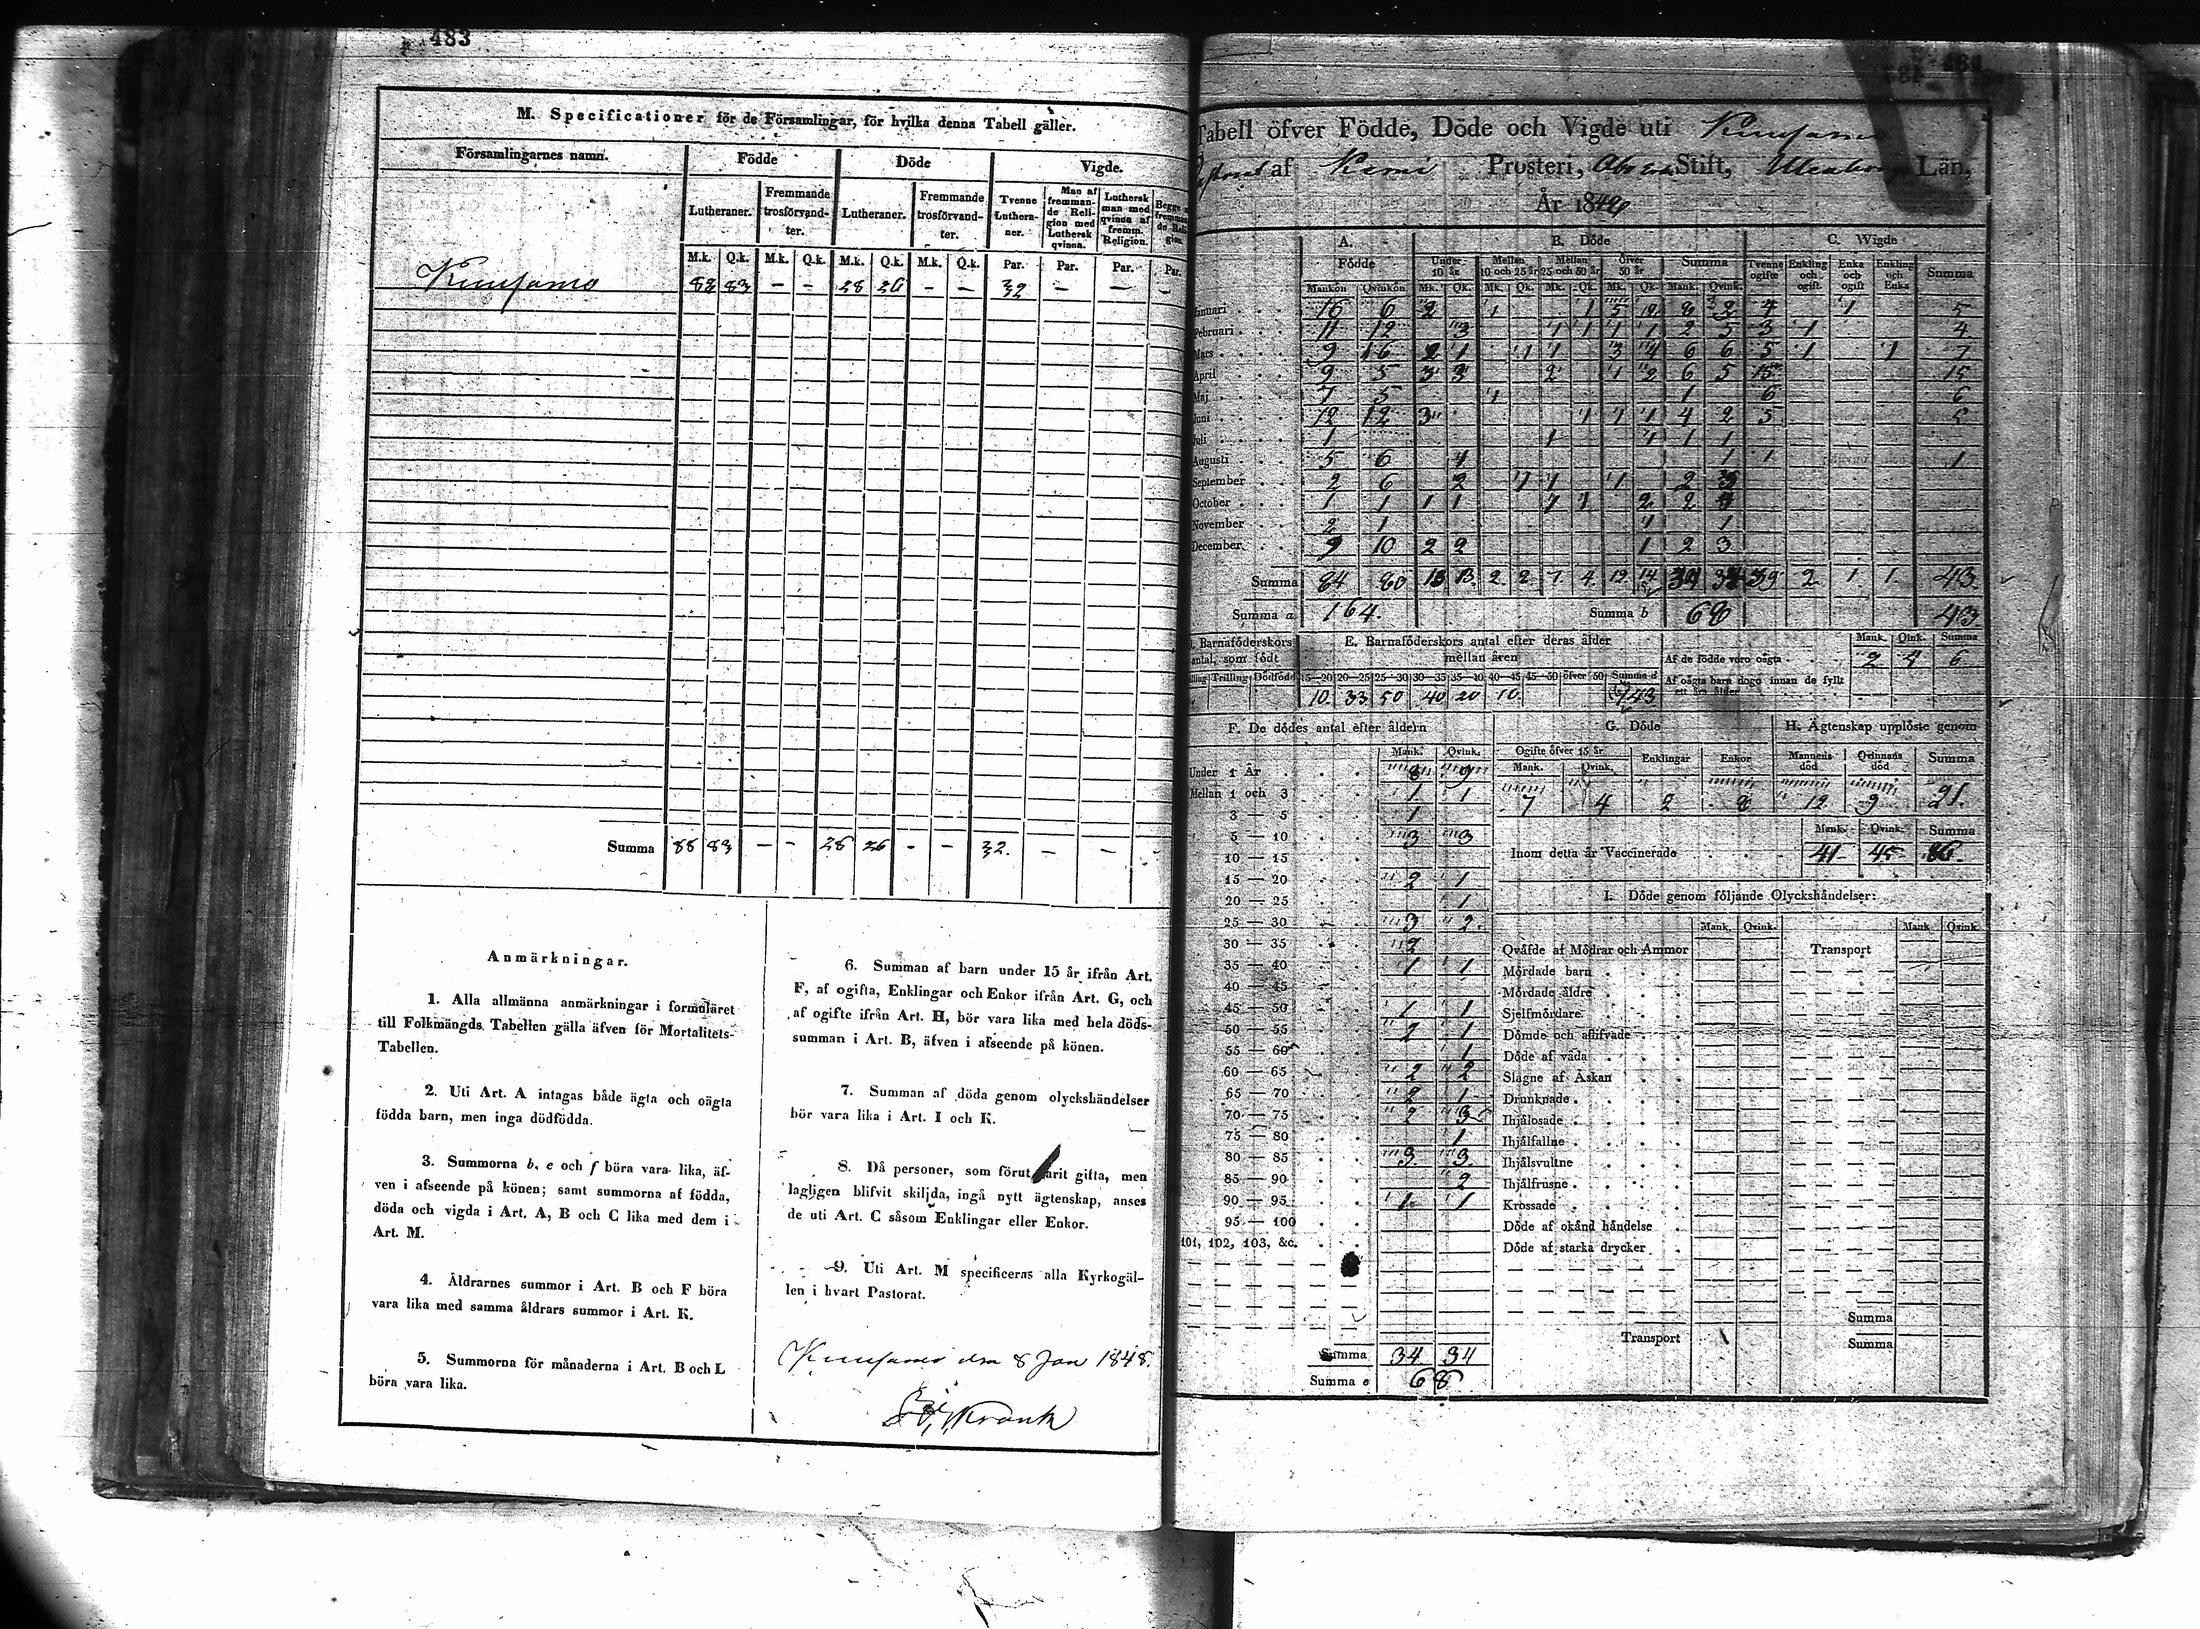 483
M. Specificationer för de Församlingar, för hvilka denna Tabell gäller.
Församlingarnes namn. Födde Döde Vigde.
Lutheraner. Fremmande trosförvandter. Lutheraner. Fremmande trosförvandter. Tvenne Lutheraner. Man af fremmande Religion med Luthersk qvinna. Luthersk man med qvinna af fremm. Religion. Begge
M.k. Q.k. M.k. Q.k. M.k. Q.k. M.k. Q.k. Par. Par. Par. Par.
Kuusamo 88 83 — — 28 26 — — 32 — — —
Summa 88 83 — — 28 26 - - 32. — — -
Anmärkningar.
1. Alla allmänna anmärkningar i formuläret
till Folkmängds Tabellen gälla äfven för Mortalitets-
Tabellen.
2. Uti Art. A intagas både ägta och oägta
födda barn, men inga dödfödda.
3. Summorna b, e och f böra vara lika, äf-
ven i afseende på könen; samt summorna af födda,
döda och vigda i Art. A, B och C lika med dem i
Art. M.
4. Åldrarnes summor i Art. B och F böra
vara lika med samma åldrars summor i Art. K.
5. Summorna för månaderna i Art. B och L
böra vara lika.
6. Summan af barn under 15 år ifrån Art.
F, af ogifta, Enklingar och Enkor ifrån Art. G, och
af ogifte ifrån Art. H, bör vara lika med hela döds-
summan i Art. B, äfven i afseende på könen.
7. Summan af döda genom olyckshändelser
bör vara lika i Art. I och K.
8. Då personer, som förut varit gifta, men
lagligen blifvit skiljda, ingå nytt ägtenskap, anses
de uti Art. C såsom Enklingar eller Enkor.
9. Uti Art. M specificeras alla Kyrkogäl-
len i hvart Pastorat.
Kuusamo den 8 Jan 1848.
484
Tabell öfver Födde, Döde och Vigde uti Kuusamo
Pastorat af Kemi Prosteri, Åbo Stift, Uleåborgs Län,
År 184
A. B. Döde C. Wigde
Födde Under 10 år Mellan 10 och 25 år Mellan 25 och 50 år Öfver 50 år Summa Tvenne ogifte Enkling och ogift. Enka och ogift Enkling och Enka Summa
Mankön Qvinkön Mk. Qk. Mk. Qk. Mk. Qk. Mk. Qk. Mank. Qvink.
Januari 16 6 2 1 1 5 2 8 2 4 1 5
Februari 11 12 3 1 1 1 1 2 5 3 1 4
Mars 9 16 2 1 1 1 3 4 6 6 5 1 1 7
April 9 5 3 3 2 1 2 6 5 15 15
Maj 7 5 1 1 6 6
Juni 12 12 3 1 1 1 4 2 5 5
Juli 1 1 1 1 1
Augusti 5 6 1 1 1 1
September 2 6 2 1 1 1 2 3
October 1 1 1 1 1 1 2 2 4
November 2 1 1 1
December 9 10 2 2 1 2 3
Summa 84 80 13 13. 2 2 7 4. 12 14 34 34 39 2 1 1 43
Summa a 164. Summa b 68 43
D. Barnaföderskors antal, som födt
Trilling Dödfödd
E. Barnaföderskors antal efter deras ålder
mellan åren
15—20 20—25 25—30 30—35 35—40 40—45 45—50 öfver 50 Summa d
10. 33 50 40 20 10
Mank. Qink. Summa
Af de födde voro oägta 2 4 6
Af oägta barn dogo innan de fyllt
ett års ålder
F. De dödes antal efter åldern
Mank. Qvink.
Under 1 År 8 9
Mellan 1 och 3 1 1
3 — 5 1
5 — 10 3 3
10 — 15
15 — 20 2 1
20 — 25 1
25 — 30 3 2
30 — 35 2
35 — 40 1 1
40 — 45
45 — 50 1 1
50 — 55 2 1
55 — 60 1
60 — 65 2 2
65 — 70 2 1
70 — 75 2 3
75 — 80 1
80 — 85 3 3
85 — 90 2
90 — 95 1 1
95 — 100
101, 102, 103, &c.
Summa 34 34
Summa e 68
G. Döde
Ogifte öfver 15 år Enklingar Enkor
Mank. Qvink.
7 4 2 8
H. Ägtenskap upplöste genom
Mannens död Qvinnans död Summa
12 9 21.
Mank. Qvink. Summa
Inom detta år Vaccinerade 41 45 86.
I. Döde genom följande Olyckshändelser:
Mank. Qvink. Mank. Qvink.
Qväfde af Mödrar och Ammor Transport
Mördade barn
Mördade äldre
Sjelfmördare
Dömde och aflifvade
Döde af våda
Slagne af Åskan
Drunknade
Ihjälosade
Ihjälfallne
Ihjälsvultne
Ihjälfrusne
Krossade
Döde af okänd händelse
Döde af starka drycker
Summa
Transport Summa